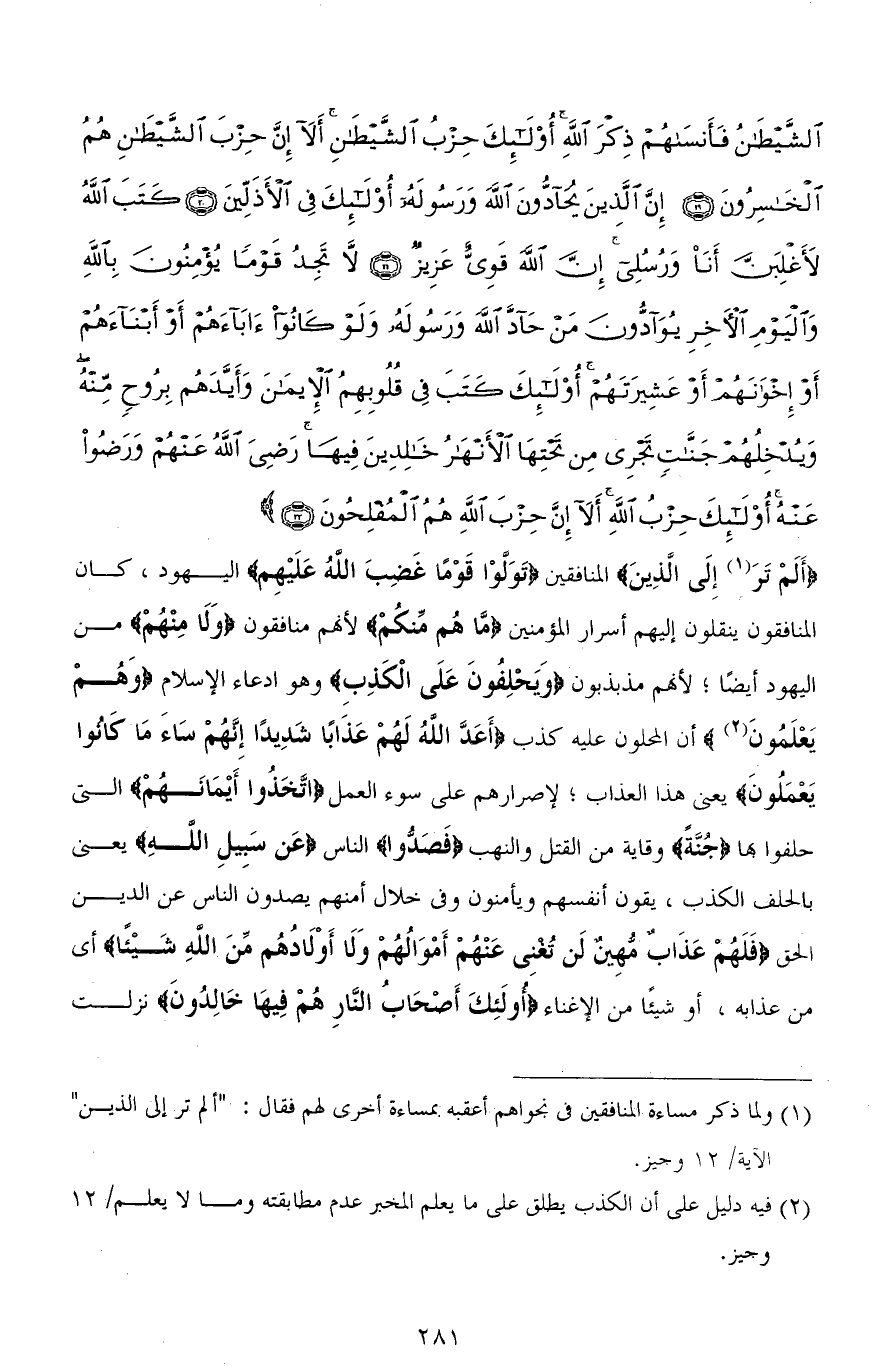 ٱلشَّيْطَٰنُ فَأَنسَىٰهُمْ ذِكْرَ ٱللَّهِ ۚ أُو۟لَٰٓئِكَ حِزْبُ ٱلشَّيْطَٰنِ ۚ أَلَآ إِنَّ حِزْبَ ٱلشَّيْطَٰنِ هُمُ
ٱلْخَٰسِرُونَ ۝١٩ إِنَّ ٱلَّذِينَ يُحَآدُّونَ ٱللَّهَ وَرَسُولَهُۥٓ أُو۟لَٰٓئِكَ فِى ٱلْأَذَلِّينَ ۝٢٠ كَتَبَ ٱللَّهُ
لَأَغْلِبَنَّ أَنَا۠ وَرُسُلِىٓ ۚ إِنَّ ٱللَّهَ قَوِىٌّ عَزِيزٌ ۝٢١ لَّا تَجِدُ قَوْمًا يُؤْمِنُونَ بِٱللَّهِ
وَٱلْيَوْمِ ٱلْءَاخِرِ يُوَآدُّونَ مَنْ حَآدَّ ٱللَّهَ وَرَسُولَهُۥ وَلَوْ كَانُوٓا۟ ءَابَآءَهُمْ أَوْ أَبْنَآءَهُمْ
أَوْ إِخْوَٰنَهُمْ أَوْ عَشِيرَتَهُمْ ۚ أُو۟لَٰٓئِكَ كَتَبَ فِى قُلُوبِهِمُ ٱلْإِيمَٰنَ وَأَيَّدَهُم بِرُوحٍ مِّنْهُ ۖ
وَيُدْخِلُهُمْ جَنَّٰتٍ تَجْرِى مِن تَحْتِهَا ٱلْأَنْهَٰرُ خَٰلِدِينَ فِيهَا ۚ رَضِىَ ٱللَّهُ عَنْهُمْ وَرَضُوا۟
عَنْهُ ۚ أُو۟لَٰٓئِكَ حِزْبُ ٱللَّهِ ۚ أَلَآ إِنَّ حِزْبَ ٱللَّهِ هُمُ ٱلْمُفْلِحُونَ ۝٢٢ ﴾
﴿أَلَمْ تَرَ(١) إِلَى الَّذِينَ﴾ المنافقين ﴿تَوَلَّوْا قَوْمًا غَضِبَ اللَّهُ عَلَيْهِم﴾ اليهود ، كان
المنافقون ينقلون إليهم أسرار المؤمنين ﴿مَّا هُم مِّنكُمْ﴾ لأنهم منافقون ﴿وَلَا مِنْهُمْ﴾ من
اليهود أيضًا ؛ لأنهم مذبذبون ﴿وَيَحْلِفُونَ عَلَى الْكَذِبِ﴾ وهو ادعاء الإسلام ﴿وَهُمْ
يَعْلَمُونَ(٢) ﴾ أن المحلون عليه كذب ﴿أَعَدَّ اللَّهُ لَهُمْ عَذَابًا شَدِيدًا إِنَّهُمْ سَاءَ مَا كَانُوا
يَعْمَلُونَ﴾ يعنى هذا العذاب ؛ لإصرارهم على سوء العمل ﴿اتَّخَذُوا أَيْمَانَهُمْ﴾ التى
حلفوا بها ﴿جُنَّةً﴾ وقاية من القتل والنهب ﴿فَصَدُّوا﴾ الناس ﴿عَن سَبِيلِ اللَّهِ﴾ يعنى
بالحلف الكذب ، يقون أنفسهم ويأمنون وفى خلال أمنهم يصدون الناس عن الدين
الحق ﴿فَلَهُمْ عَذَابٌ مُّهِينٌ لَن تُغْنِى عَنْهُمْ أَمْوَالُهُمْ وَلَا أَوْلَادُهُم مِّنَ اللَّهِ شَيْئًا﴾ أى
من عذابه ، أو شيئًا من الإغناء ﴿أُولَئِكَ أَصْحَابُ النَّارِ هُمْ فِيهَا خَالِدُونَ﴾ نزلت
(١) ولما ذكر مساءة المنافقين فى نجواهم أعقبه بمساءة أخرى لهم فقال : "ألم تر إلى الذين"
الآية/ ١٢ وجيز.
(٢) فيه دليل على أن الكذب يطلق على ما يعلم المخبر عدم مطابقته وما لا يعلم/ ١٢
وجيز.
٢٨١